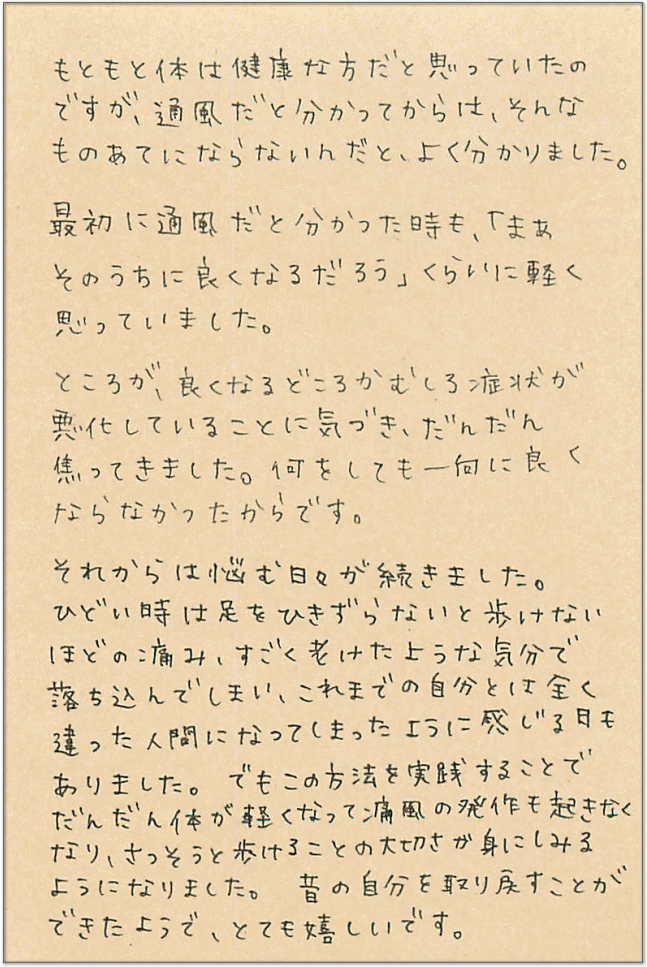 もともと体は健康な方だと思っていたの
ですが、通風だと分かってからは、そんな
ものあてにならないんだと、よく分かりました。
最初に通風だと分かった時も、「まあ
そのうちに良くなるだろう」くらいに軽く
思っていました。
ところが、良くなるどころかむしろ症状が
悪化していることに気づき、だんだん
焦ってきました。何をしても一向に良く
ならなかったからです。
それからは悩む日々が続きました。
ひどい時は足をひきずらないと歩けない
ほどの痛み、すごく老けたような気分で
落ち込んでしまい、これまでの自分とは全く
違った人間になってしまったように感じる日も
ありました。でもこの方法を実践することで
だんだん体が軽くなって痛風の発作も起きなく
なり、さっそうと歩けることの大切さが身にしみる
ようになりました。 昔の自分を取り戻すことが
できたようで、とても嬉しいです。